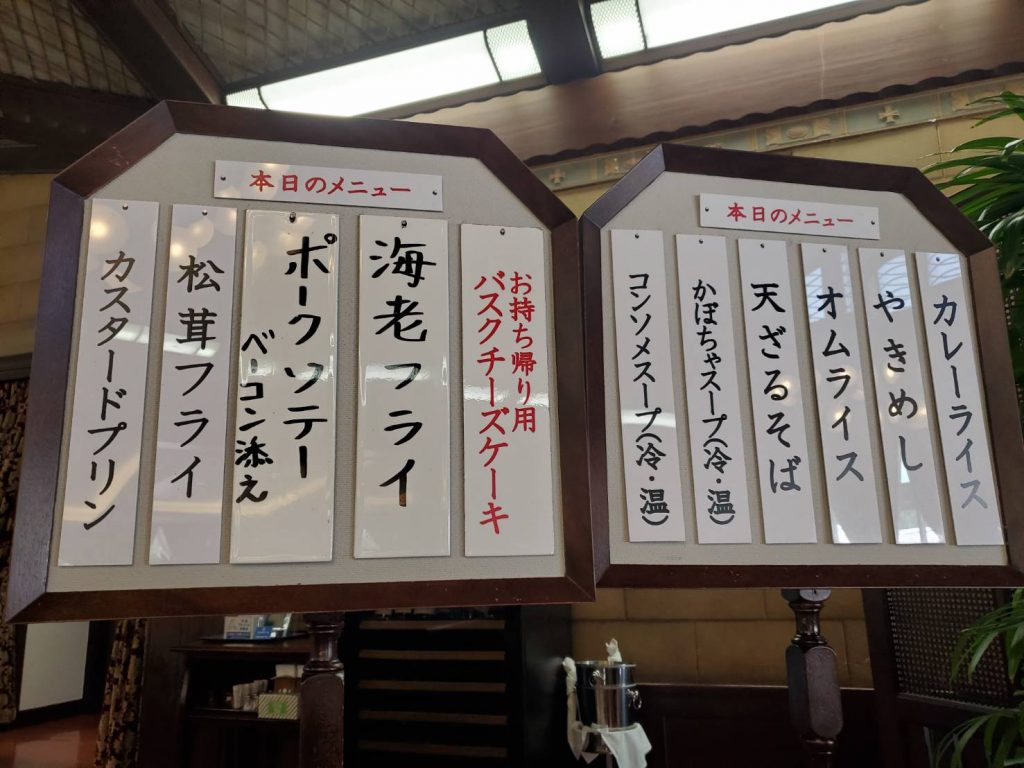 本日のメニュー
お持ち帰り用
バスクチーズケーキ
海老フライ
ポークソテー
ベーコン添え
松茸フライ
カスタードプリン
本日のメニュー
カレーライス
やきめし
オムライス
天ざるそば
かぼちゃスープ(冷・温)
コンソメスープ(冷・温)